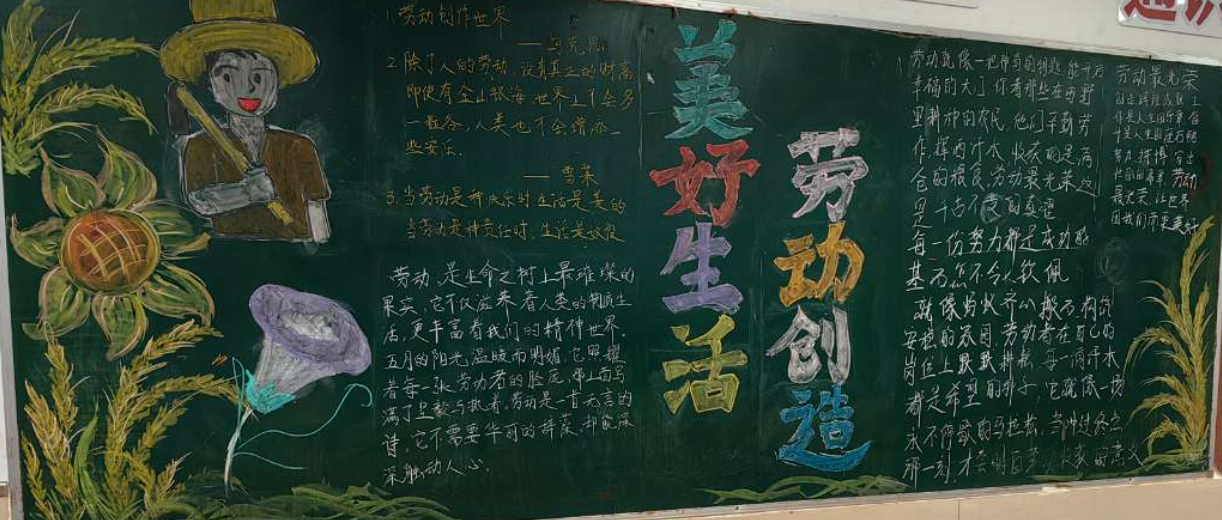 1. 劳动创作世界
——马克思
2 除了人的劳动,没有真正的财富
即使有金山银海,世界上不会多
一粒谷,人类也不会增添一
些安乐.
——雪莱
3. 当劳动是种快乐时,生活是美的
当劳动是种责任时,生活是奴役
劳动,是生命之树上最璀璨的
果实,它不仅滋养着人类的物质生
活,更丰富着我们的精神世界.
五月的阳光,温暖而明媚,它照耀
着每一张劳动者的脸庞,那上面写
满了坚毅与执着.劳动是一首无言的
诗,它不需要华丽的辞藻,却能深
深触动人心.
美好生活
劳动创造
劳动就像一把神奇的钥匙,能开启
幸福的大门.你看那些在田野
里耕种的农民,他们辛勤劳
作,挥洒汗水,收获的是满
仓的粮食,劳动最光荣,这
是千古不变的真理
每一份努力都是成功的
基石,怎不令人钦佩
就像蚂蚁齐心搬石,构筑
安稳的家园.劳动者在自己的
岗位上默默耕耘,每一滴汗水
都是希望的种子,它就像一场
永不停歇的马拉松,当冲过终点
那一刻,才会明白的意义
劳动最光荣
努力拼搏
劳动
最光荣,让世界
因我们而更美好